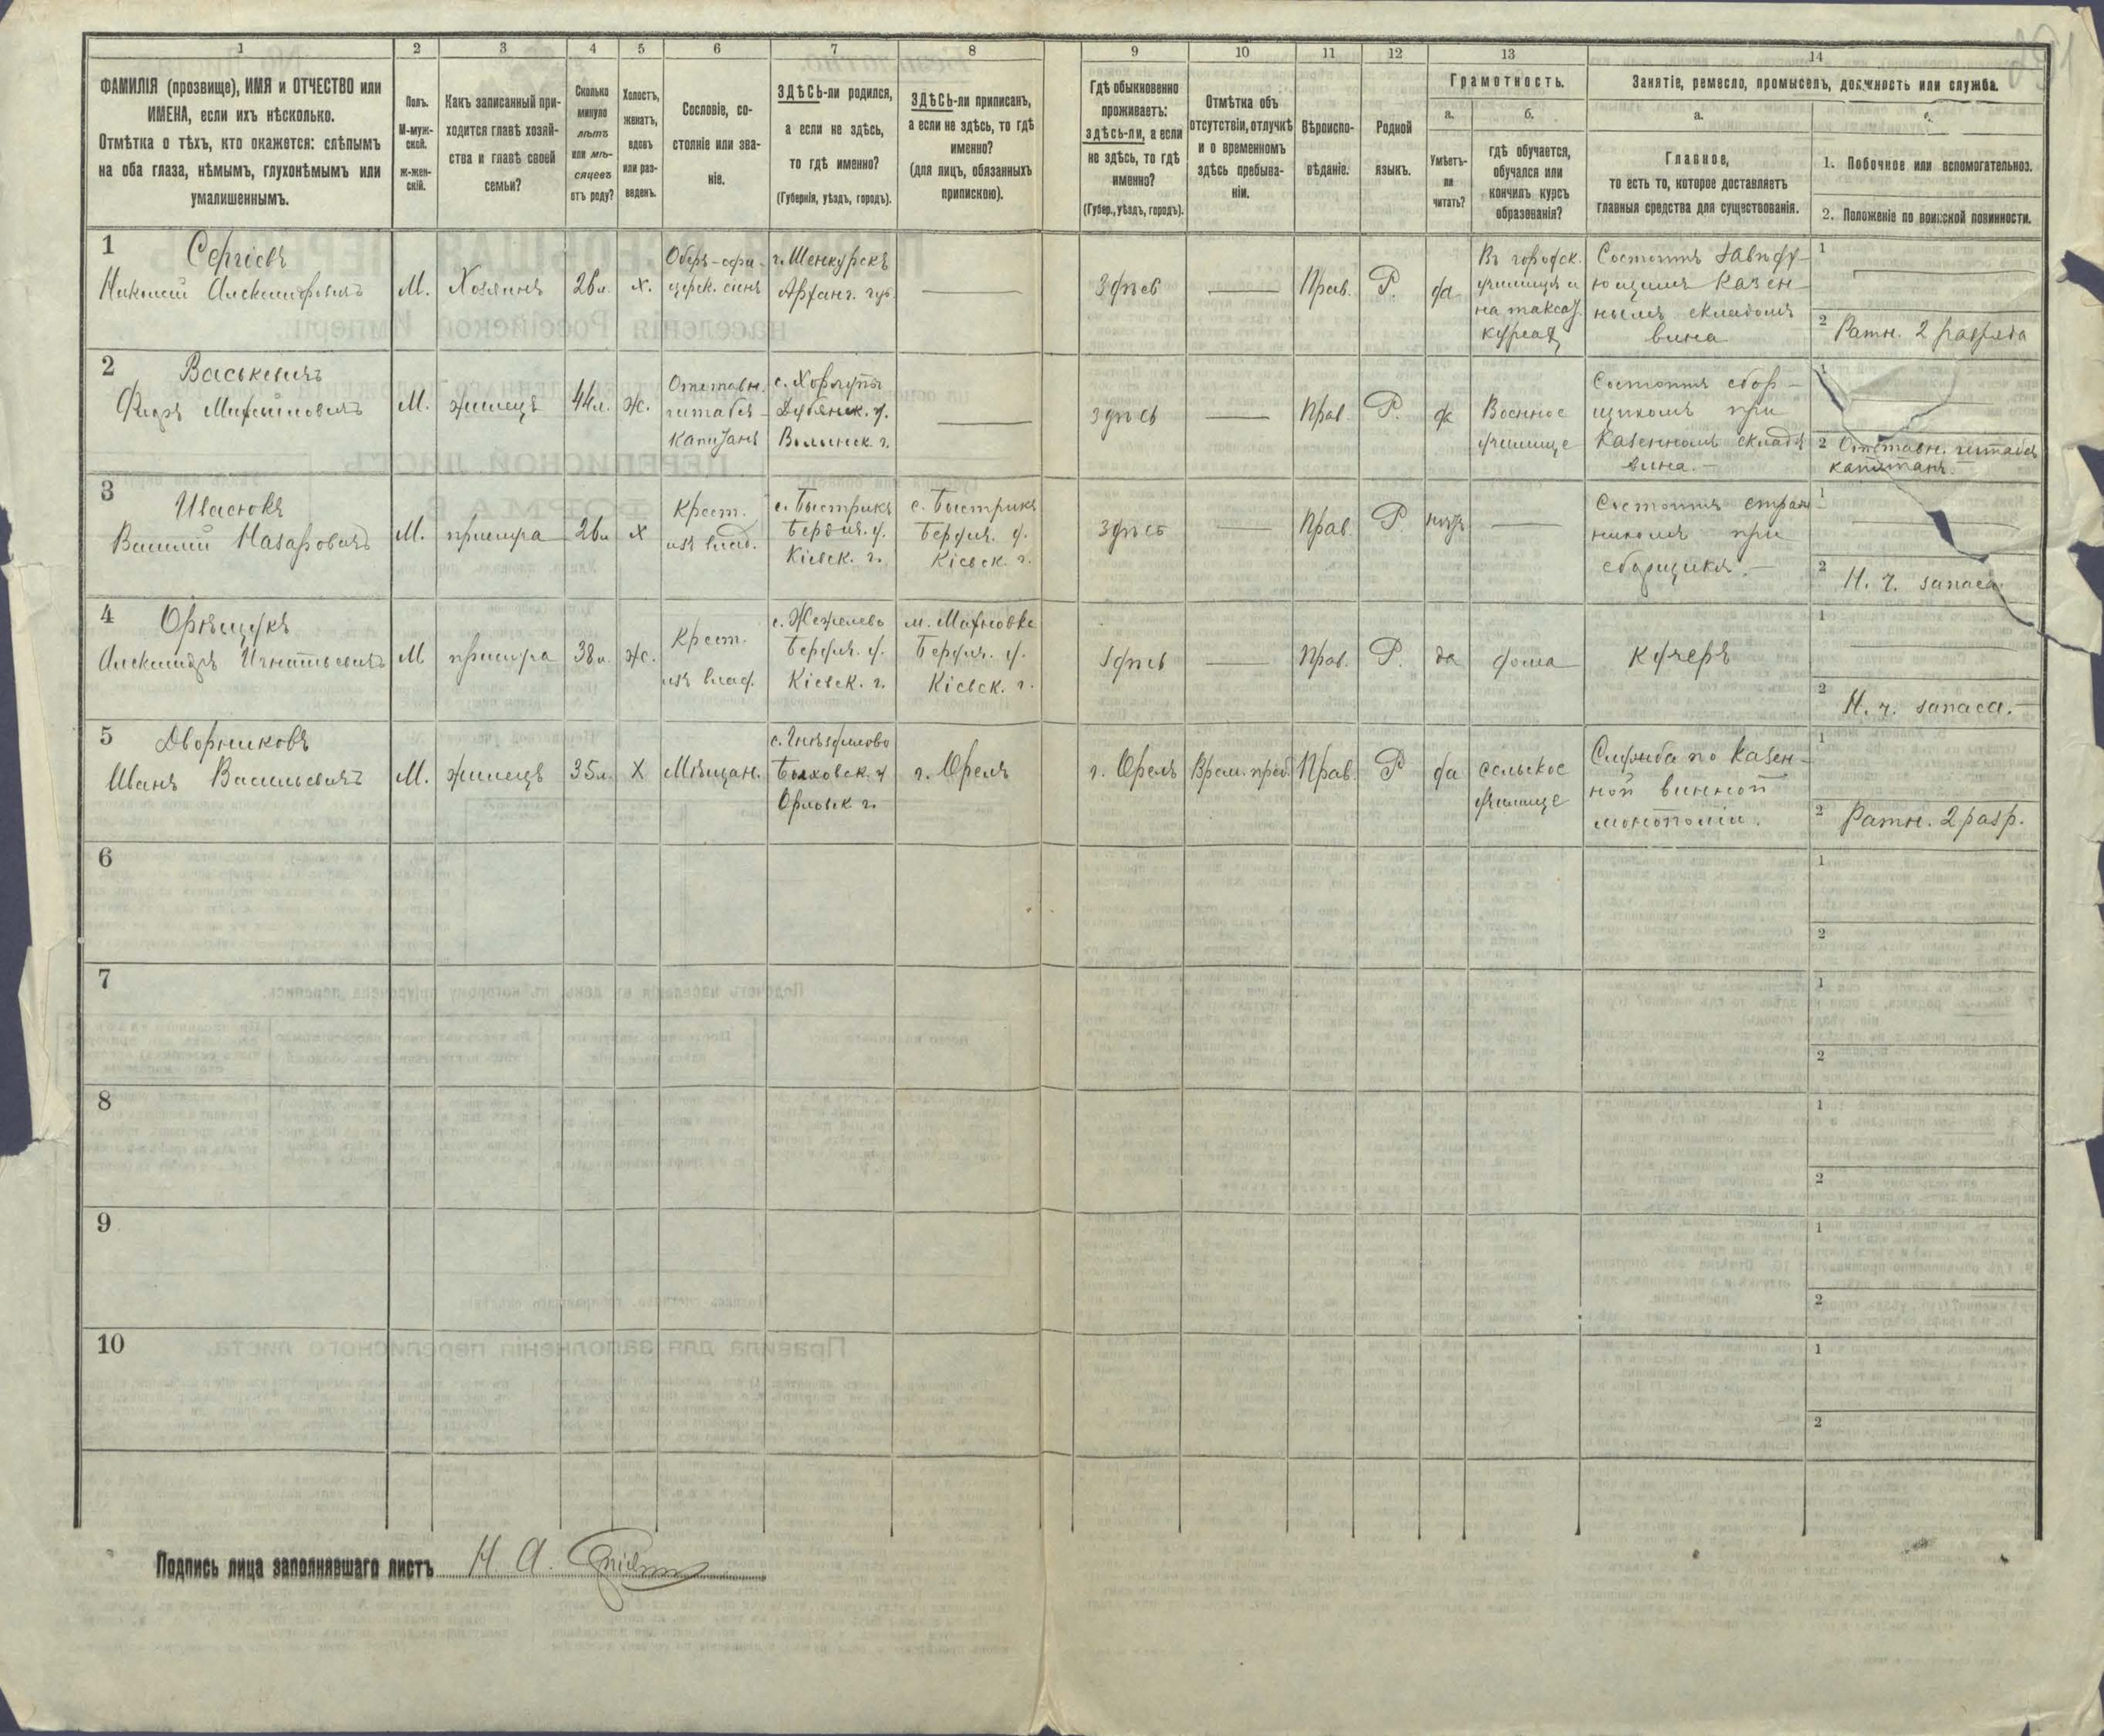 1 2 3 4 5 6 7 8 9 10 11 12 13 14
ФАМИЛІЯ (прозвище), ИМЯ и ОТЧЕСТВО или
ИМЕНА, если ихъ нѣсколько.
Отмѣтка о тѣхъ, кто окажется: слѣпымъ
на оба глаза, нѣмымъ, глухонѣмымъ или
умалишеннымъ.
Полъ.
М-муж-
ской.
ж-жен-
скій.
Какъ записанный при-
ходится главѣ хозяй-
ства и главѣ своей
семьи?
Сколько
минуло
лѣтъ
или мѣ-
сяцевъ
отъ роду?
Холостъ,
женатъ,
вдовъ
или раз-
веденъ.
Сословіе, со-
стояніе или зва-
ніе.
ЗДѢСЬ-ли родился,
а если не здѣсь,
то гдѣ именно?
(Губернія, уѣздъ, городъ).
ЗДѢСЬ-ли приписанъ,
а если не здѣсь, то гдѣ
именно?
(для лицъ, обязанныхъ
припискою).
Гдѣ обыкновенно
проживаетъ:
здѣсь-ли, а если
не здѣсь, то гдѣ
именно?
(Губер., уѣздъ, городъ).
Отмѣтка объ
отсутствіи, отлучкѣ
и о временномъ
здѣсь пребыва-
ніи.
Вѣроиспо-
вѣданіе.
Родной
языкъ.
Грамотность.
а.
Умѣетъ-
ли
читать?
б.
гдѣ обучается,
обучался или
кончилъ курсъ
образованія?
Занятіе, ремесло, промыселъ, должность или служба.
а.
Главное,
то есть то, которое доставляетъ
главныя средства для существованія.
1. Побочное или вспомогательноə.
2. Положеніе по воинской повинности.
1
Сергіевъ
Николай Александровичъ
М.
Хозяинъ
26 л.
х.
Оберъ-офи-
церск. сынъ
г. Шенкурскъ
Арханг. губ.
Здѣсь
Прав.
Р.
да
Въ городск.
училищѣ и
на таксат.
курсахъ
Состоитъ завѣду-
ющимъ казен-
нымъ складомъ
вина
1
2 Ратн. 2 разряда
2
Васькевичъ
М.
жилецъ
44 л.
ж.
Отставн.
штабсъ-
капитанъ
с. Хорлупы
Дубенск. у.
Волынск. г.
здѣсь
Прав.
Р.
да
Военное
училище
Состоитъ сбор-
щикомъ при
казенномъ складѣ
вина.
1
2 Отставн. штабсъ
капитанъ.
3
Василій Назаровичъ
М.
прислуга
26 л
х
Крест.
изъ влад.
с. Быстрикъ
Бердич. у.
Кіевск. г.
с. Быстрикъ
Бердич. у.
Кіевск. г.
здѣсь
Прав.
Р.
Состоитъ страж
никомъ при
сборщикѣ.
1
2 Н. ч. запаса
4
Орѣщукъ
Александръ Игнатьевичъ
М
прислуга
38 л.
ж.
Крест.
изъ влад.
с. Жежелево
Бердич. у.
Кіевск. г.
м. Махновка
Бердич. у.
Кіевск. г.
здѣсь
Прав.
Р.
да
дома
кучеръ
1
2 Н. ч. запаса.
5
Дворниковъ
Иванъ Васильевичъ
М.
жилецъ
35 л.
Х
Мѣщан.
Орловск г.
г. Орелъ
г. Орелъ
Врем. преб.
Прав.
Р
да
сельское
училище
Служба по казен-
ной винной
монополіи.
1
2 Ратн. 2 разр.
6
1
2
7
1
2
8
1
2
9
1
2
10
1
2
Подпись лица заполнявшаго листъ Н. А.